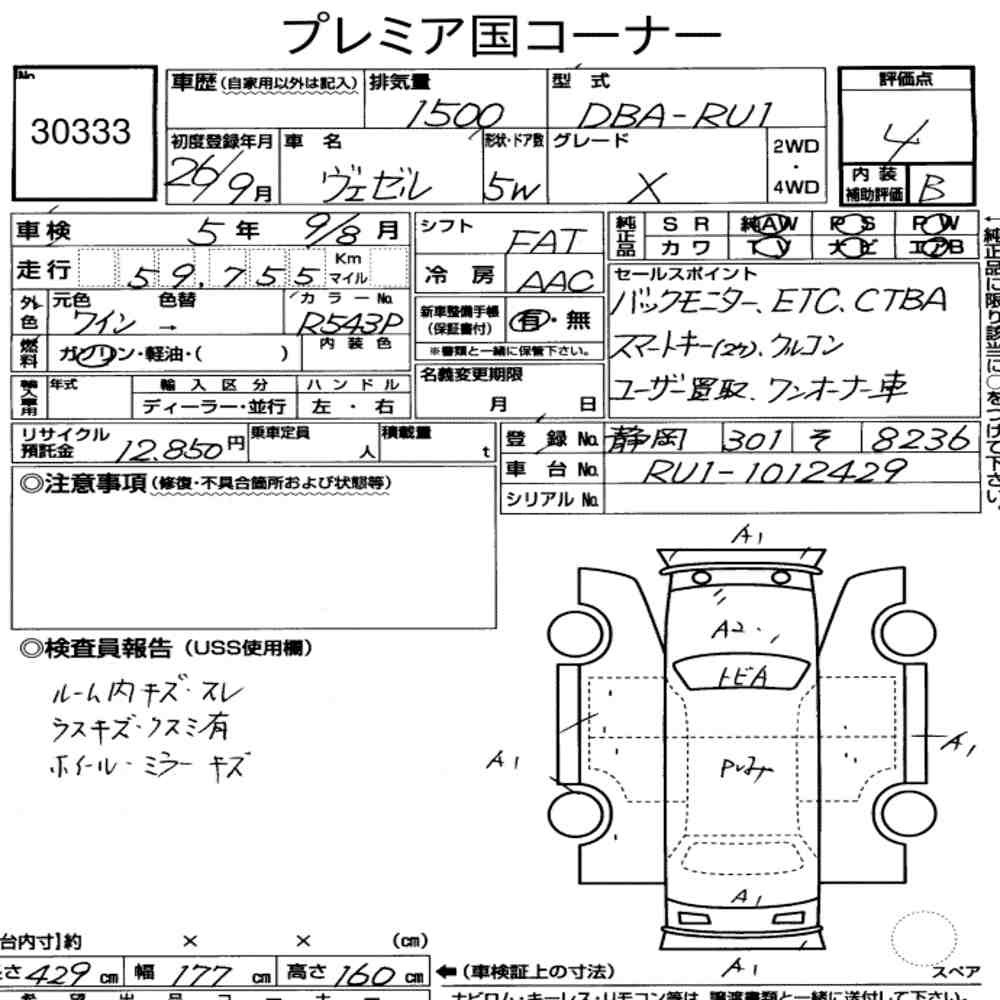 プレミア国コーナー
No. 30333
車歴(自家用以外は記入) 排気量 1500 型式 DBA-RU1
評価点 4
初度登録年月 26/9月 車名 ヴェゼル 形状・ドア数 5W グレード X 2WD・4WD
内装補助評価 B
車検 5年 9/8月 シフト FAT 純正品 SR 純AW PS PW
カワ TV 本ビ エアB
走行 59,755 Km マイル 冷房 AAC
セールスポイント
バックモニター、ETC、CTBA
スマートキー(2ケ)、クルコン
ユーザー買取、ワンオーナー車
外色 元色 ワイン → 色替 カラーNo. R543P
新車整備手帳(保証書付) 有・無
※書類と一緒に保管下さい。
燃料 ガソリン・軽油・( ) 内装色
名義変更期限 月 日
輸入車用 年式 輸入区分 ディーラー・並行 ハンドル 左・右
リサイクル預託金 12,850円 乗車定員 人 積載量 t
登録No. 静岡 301 そ 8236
車台No. RU1-1012429
シリアルNo.
←純正品に限り該当に○をつけて下さい。
◎注意事項(修復・不具合箇所および状態等)
◎検査員報告(USS使用欄)
ルーム内キズ・スレ
ラスキズ・クスミ有
ホイール・ミラーキズ
A1
A2
トビA
A1
A1
A1
A1
台内寸]約 × × (cm)
さ429cm 幅177cm 高さ160cm ←(車検証上の寸法)
スペア
希望出品コーナー
ナビロム・キーレス・リモコン等は、譲渡書類と一緒に送付して下さい。